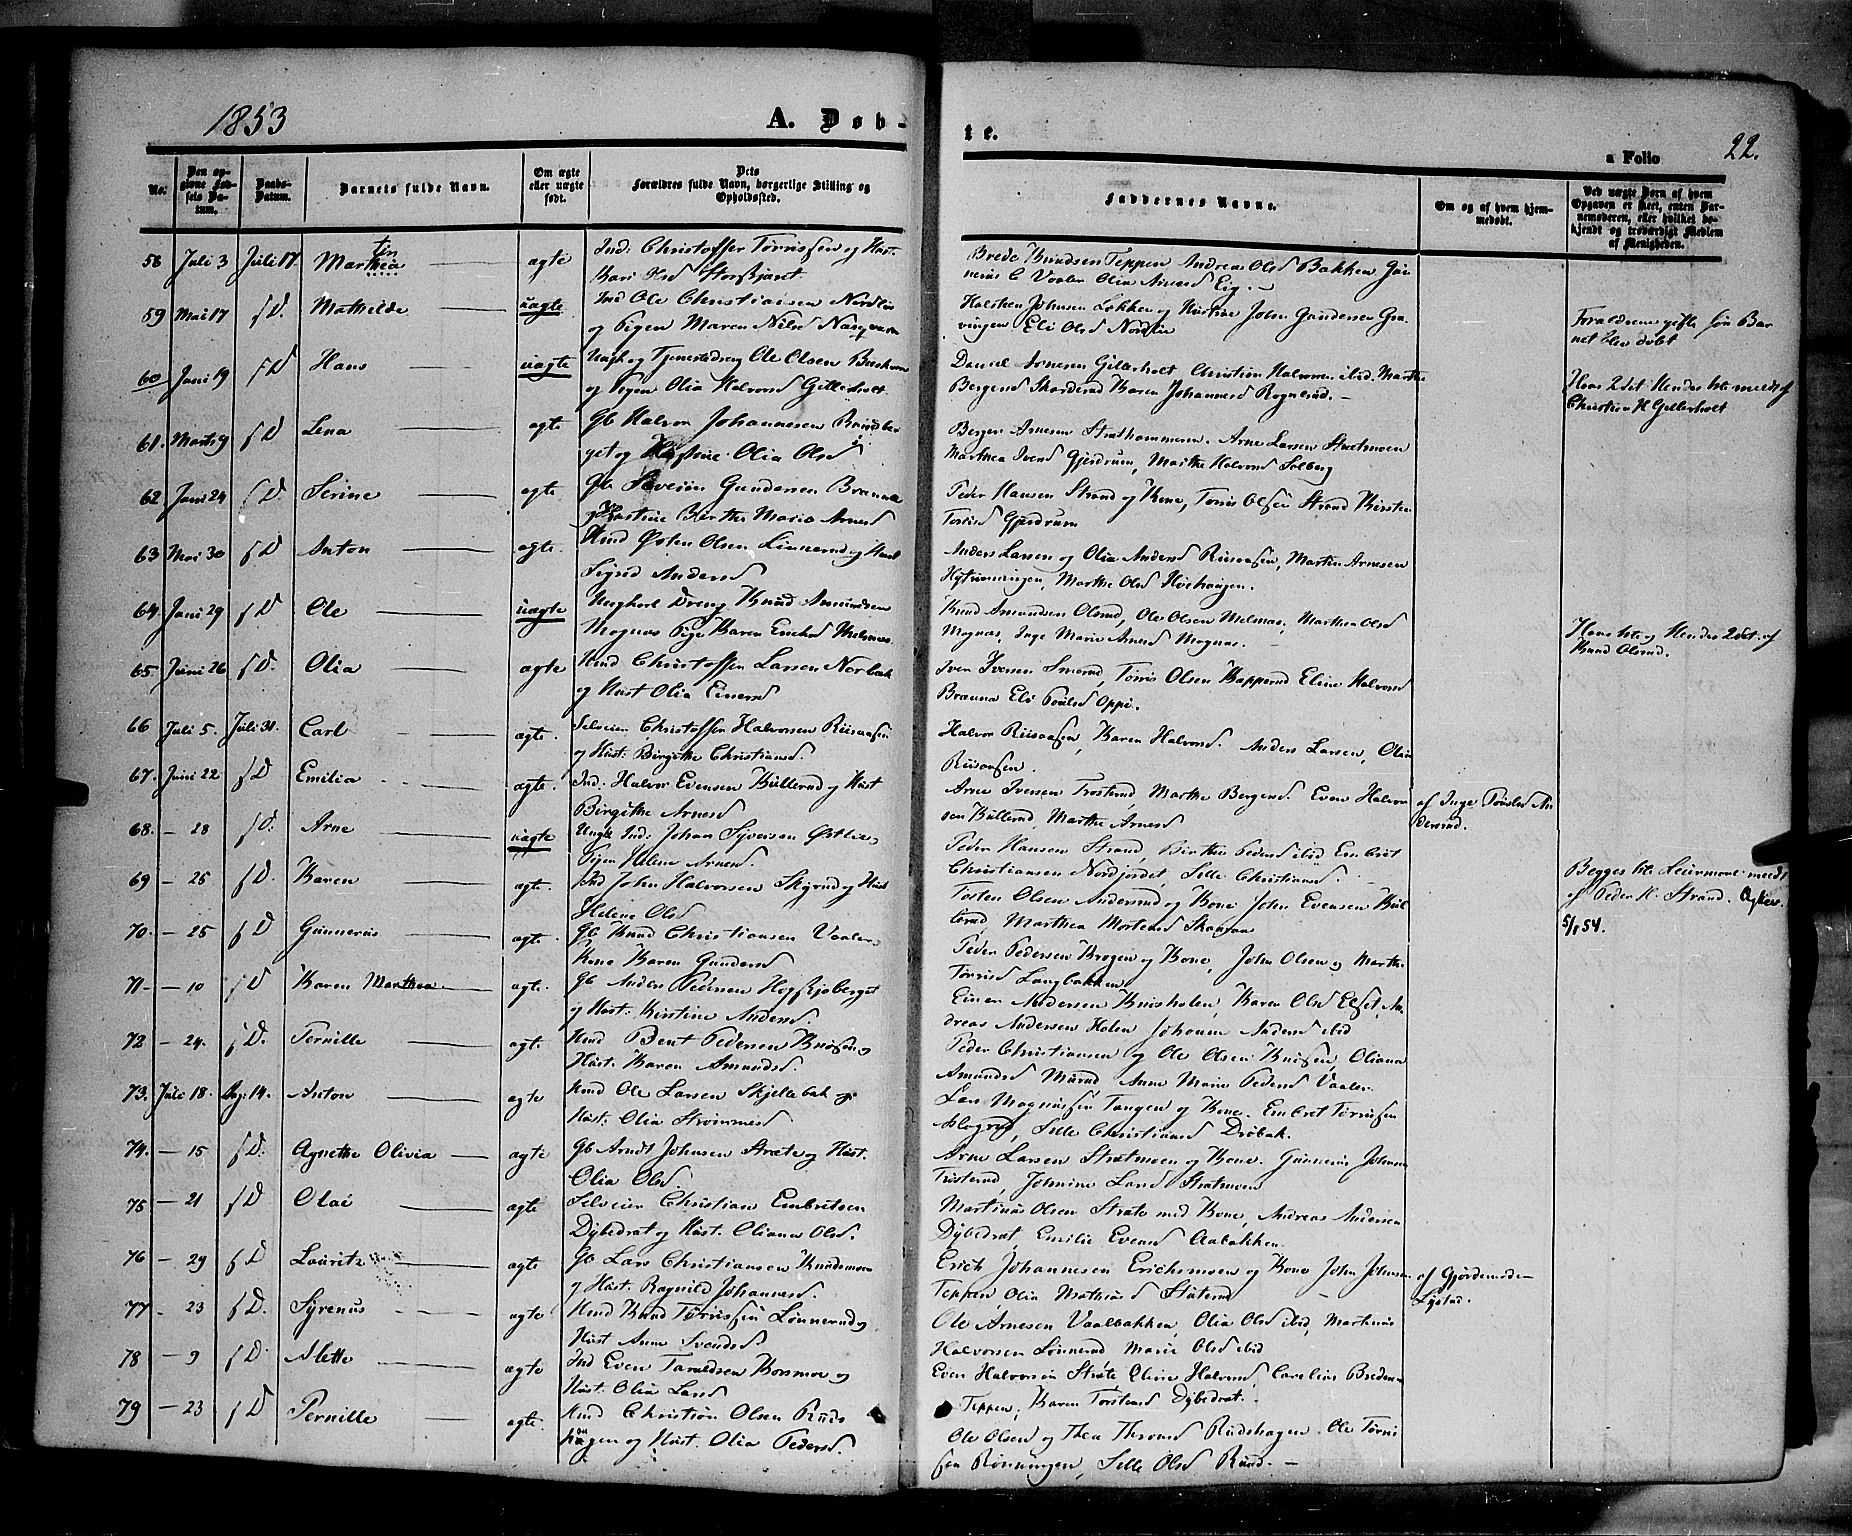 1853
A. Døb-
te.
a Folio 22.
No.
Den opgivne Fødsels Datum.
Daabs-Datum.
Barnets fulde Navn.
Om ægte eller uægte født.
Dets Forældres fulde Navn, borgerlige Stilling og Opholdssted.
Faddernes Navne.
Om og af hvem hjemmedøbt.
Ved uægte Børn af hvem Opgaven er skeet, enten Barnemoderen, eller hvilket bekjendt og troværdigt Medlem af Menigheden.
58 Juli 3 Juli 17 Marthea tin agte Ind: Christoffer Tørrissen og Hust.
Kari Olsd
Brede Knudsen Teppen Andreas Olsd Bakken
Vaaler Olia Arnesd Eig. —
59 Mai 17 f D. Mathilde uagte Ind Ole Christiansen Nordlie
og Pigen Maren Nilsd
Halsten Johnsen Løkken og Hustrue John Gundersen Gra-
vingen Eli Olsd Nordlie
Forældrene gifte før Bar
net blev døbt
60 Juni 19 f D Hans uagte Ungk og Tjenestedreng Ole Olsen
og Pigen Olia Halvorsd Gillerholt
Daniel Arnesen Gillerholt Christian Halvorsen ibid. Marthe
Bergersd Skarderud Karen Johannesd Rognerud. —
Hans 2det Hendes 1ste meldt af
Christian H Gillerholt
61. Marts 9 f D Lena agte Gb Halvor Johannesen
get og Hustrue Olia Olsd
Berger Arnesen Strathammeren. Arne Larsen Stratmoen
Marthea Iversd Gjerdrum, Marthe Halvorsd Solberg
62 Juni 24 f D Serine agte Gb Severin Gundersen Braanaa
og Hustrue Berthe Maria Arnesd
Peder Hansen Strand og Kone, Torris Olsen Strand Kirstine
Torrisd Gjerdrum
63 Mai 30 f D Anton agte. Hmd Østen Olsen Linnerud og Hust
Sigrid Andersd
Anders Larsen og Olia Andersd Riisaasen, Martin Arnesen
Marthe Olsd
64 Juni 29 f D Ole uagte Ungkarl Dreng Knud Amundsen
Mognæs Pige Karen Melnæs
Knud Amundsen Olsrud, Ole Olsen Melnæs, Marthea Olsd
Mognæs, Inge Marie Arnesd Mognæs. —
Hans 1ste og Hendes 2det. af
Knud Olsrud.
65 Juni 26 f D. Olia agte Hmd Christoffer Larsen Norbak
og Hust Olia Einersd
Iver Iversen Smerud, Torris Olsen Kapperud Eline Halvorsd
Braanaa Eli Poulsd Oppi.
66 Juli 5. Juli 31. Carl agte. Selveier Christoffer Halvorsen Riisaasen
og Hust: Birgithe Christiansd.
Halvor Riisaasen, Karen Halvorsd. Anders Larsen, Olia
Riisaasen.
67. Juni 22 f D Emilia agte. Ind: Halvor Evensen Küllerud og Hust
Birgithe Arnesd
Arne Iversen Trosterud Marthe Bergersd Even Halvor
sen Küllerud, Marthe Arnesd
af Inge An
dersrud.
68. — 28 f D: Arne uagte Ungk Ind: Johan Syversen Østlie,
Pigen Helene Arnesd.
Peder Hansen Strand, Berthe Pedersd ibid Embret
Christiansen Nordjordet, Sille Christiansd.
Begges 1ste Leiermaal meldt
af Peder H. Strand.
5/1 54.
69 — 25 f D. Karen agte. Ind John Halvorsen og Hust
Helene Olsd
Tosten Olsen Andersrud og Kone John Evensen Kül-
lerud, Marthea Mortensd Skaaraa
70. — 25 f D Gunnerus agte. Gb Knud Christiansen Vaaler
Kone Karen Gundersd
Peder Pedersen Brogen og Kone, John Olsen og Marthe
Torrisd Langbakken
71 — 10 f D Karen Marthea agte. Gb Anders Pedersen Høgskjøberget
og Hust: Kirstine Andersd.
Einer Andersen Kniisholen, Karen Olsd Elset, An-
dreas Andersen Holen Johanne Andersd ibid
72 — 24. f D. Pernille agte. Hmd Bent Pedersen Kniisen og
Hust: Karen Amundsd.
Peder Christiansen og Ole Olsen Kniisen, Oliana
Amundsd Morud Anne Marie Pedersd Vaaler
73. Juli 18. Aug. 14. Anton agte Hmd Ole Larsen Skjellebak og
Hust: Olia
Lars Magnussen Tangen og Kone. Embret Torrissen
Sille Christiansd Driebak.
74. — 15 f D. Agnethe Olivia agte Gb Arndt Johnsen Stræte og Hust.
Olia Olsd.
Arne Larsen Strætmoen og Kone. Gunnerus Johnsen
Trosterud, Johnine Larsd Strætmoen
75 — 21 f D Olai agte Selveier Christian Embretsen
Dybedræt og Hust. Oliana Olsd.
Martinus Olsen Stræte med Kone, Andreas Andersen
Dybedræt Emilie Evensd Aabakken
76 — 29 f D. Lauritz agte Gb Lars Christiansen Kundsmoen
og Hust. Ragnild Johannesd.
Erick Johannesen Ericksmoen og Kone John Johnsen
Teppen, Olia Mathisd
af Gjordemoder
77 — 23 f D. Syrenus agte Hmd Knud Torrissen Lønnerud og
Hust Anne Svendsd.
Ole Arnesen Vaalbakken, Olia Olsd ibid, Martinus
Halvorsen Lønnerud Marie Olsd ibid
78 — 9 f D. Alette agte Ind Even Taraldsen Kosmoe og
Hust: Olia Larsd
Even Halvorsen Stræte Oline Halvorsd, Carelius Breden
Teppen, Karen Torstensd Dybedræt.
79 — 23 f D Pernille agte. Hmd Christian Olsen Ruds
hagen og Hust. Olia Pedersd.
Ole Olsen og Thea Thronsd Rudshagen. Ole Torris
sen Rønningen, Sille Olsd Ruud. —